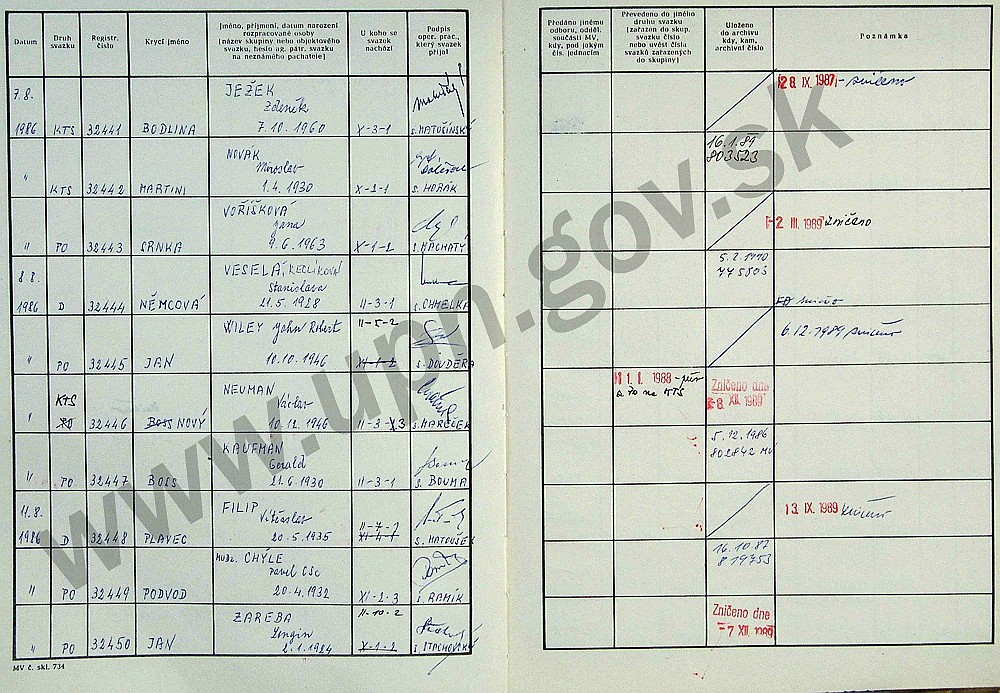 Datum
Druh svazku
Registr. číslo
Krycí jméno
Jméno, příjmení, datum narození rozpracované osoby (název skupiny nebo objektového svazku, heslo ag. pátr. svazku na neznámého pachatele)
U koho se svazek nachází
Podpis oper. prac., který svazek přijal
Předáno jinému odboru, odděl. součásti MV, kdy, pod jakým čís. jednacím
Převedeno do jiného druhu svazku (zařazen do skup. svazku číslo nebo uvést čísla svazků zařazených do skupiny)
Uloženo do archivu kdy, kam, archivní číslo
Poznámka
7.8. JEŽEK
Zdeněk 28. IX. 1987
1986 KTS 32441 BODLINA 7.10.1960 X-3-1 s. MATUČINSKÝ
NOVÁK 16.1.87
Miroslav 803523
" KTS 32442 MARTINI 1.4.1930 X-2-1 s. HORÁK
VOŘÍŠKOVÁ
Jana -2 III. 1989 Zničeno
" PO 32443 SRNKA 9.6.1963 X-1-2 s. MACHATÝ
8.8. VESELÁ, KECLÍKOVÁ 5.2.1990
Stanislava 445803
1986 D 32444 NĚMCOVÁ 21.5.1928 II-3-1 s. CHMELKA
WILEY John Robert II-5-2
6.12.1989
" PO 32445 JAN 10.10.1946 XI-1-2 s. DOUDĚRA
KTS NEUMAN 11. 1. 1988 Zničeno dne
Václav a to na KTS -8. XII. 1989
" PO 32446 BOSS NOVÝ 10.12.1946 II-3-3 s. MAREČEK
KAUFMAN 5.12.1986
Gerald 802842 MV
" PO 32447 BOSS 21.6.1930 II-3-1 s. BOUMA
11.8. FILIP
Vítězslav II-7-2 13. IX. 1989
1986 D 32448 PLAVEC 20.5.1935 XI-4-1 s. MATOUŠEK
MUDr. CHÝLE 16.10.87
Pavel CSc 819753
" PO 32449 PODVOD 20.4.1932 XI-2-3 s. RAMÍK
ZAREBA II-10-2 Zničeno dne
Longin -7. XII. 1989
" PO 32450 JAN 2.1.1924 X-1-2 s. STACHOVSKÝ
MV č. skl. 734
www.upn.gov.sk